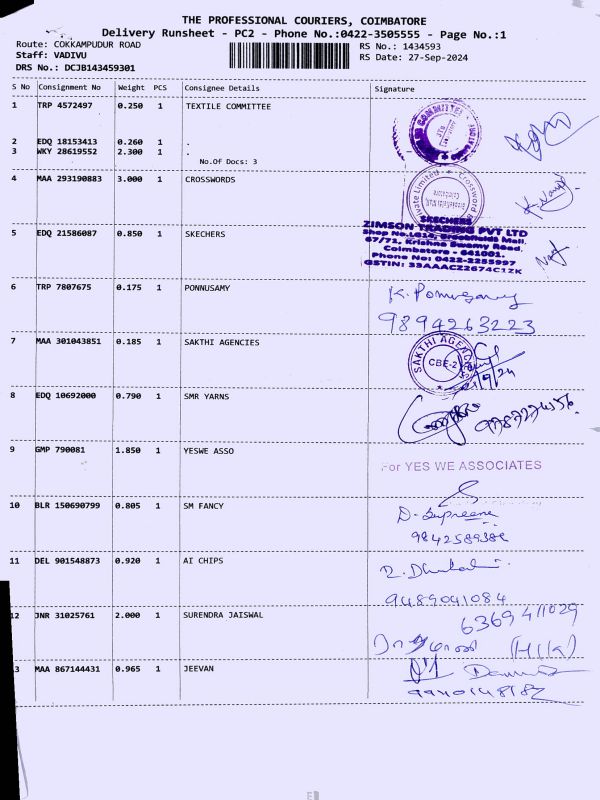 THE PROFESSIONAL COURIERS, COIMBATORE
Delivery Runsheet - PC2 - Phone No.:0422-3505555 - Page No.:1
Route: COKKAMPUDUR ROAD
Staff: VADIVU
DRS No.: DCJB143459301
RS No.: 1434593
RS Date: 27-Sep-2024
S No Consignment No Weight PCS Consignee Details Signature
1 TRP 4572497 0.250 1 TEXTILE COMMITTEE
2 EDQ 18153413 0.260 1 .
3 WKY 28619552 2.300 1 .
No.Of Docs: 3
4 MAA 293190883 3.000 1 CROSSWORDS
SKECHERS
ZIMSON TRADING PVT LTD
5 EDQ 21586087 0.850 1 SKECHERS
Shop No.LG16, Brookfields Mall,
67/71, Krishna Swamy Road,
Coimbatore - 641001.
Phone No: 0422-2255997
GSTIN: 33AAACZ2674C1ZK
6 TRP 7807675 0.175 1 PONNUSAMY
K. Ponnusamy
9894263223
7 MAA 301043851 0.185 1 SAKTHI AGENCIES
SAKTHI AGENCIES
CBE-2
8 EDQ 10692000 0.790 1 SMR YARNS
9 GMP 790081 1.850 1 YESWE ASSO
For YES WE ASSOCIATES
10 BLR 150690799 0.805 1 SM FANCY
11 DEL 901548873 0.920 1 AI CHIPS
9489041084
12 JNR 31025761 2.000 1 SURENDRA JAISWAL
6369411029
13 MAA 867144431 0.965 1 JEEVAN